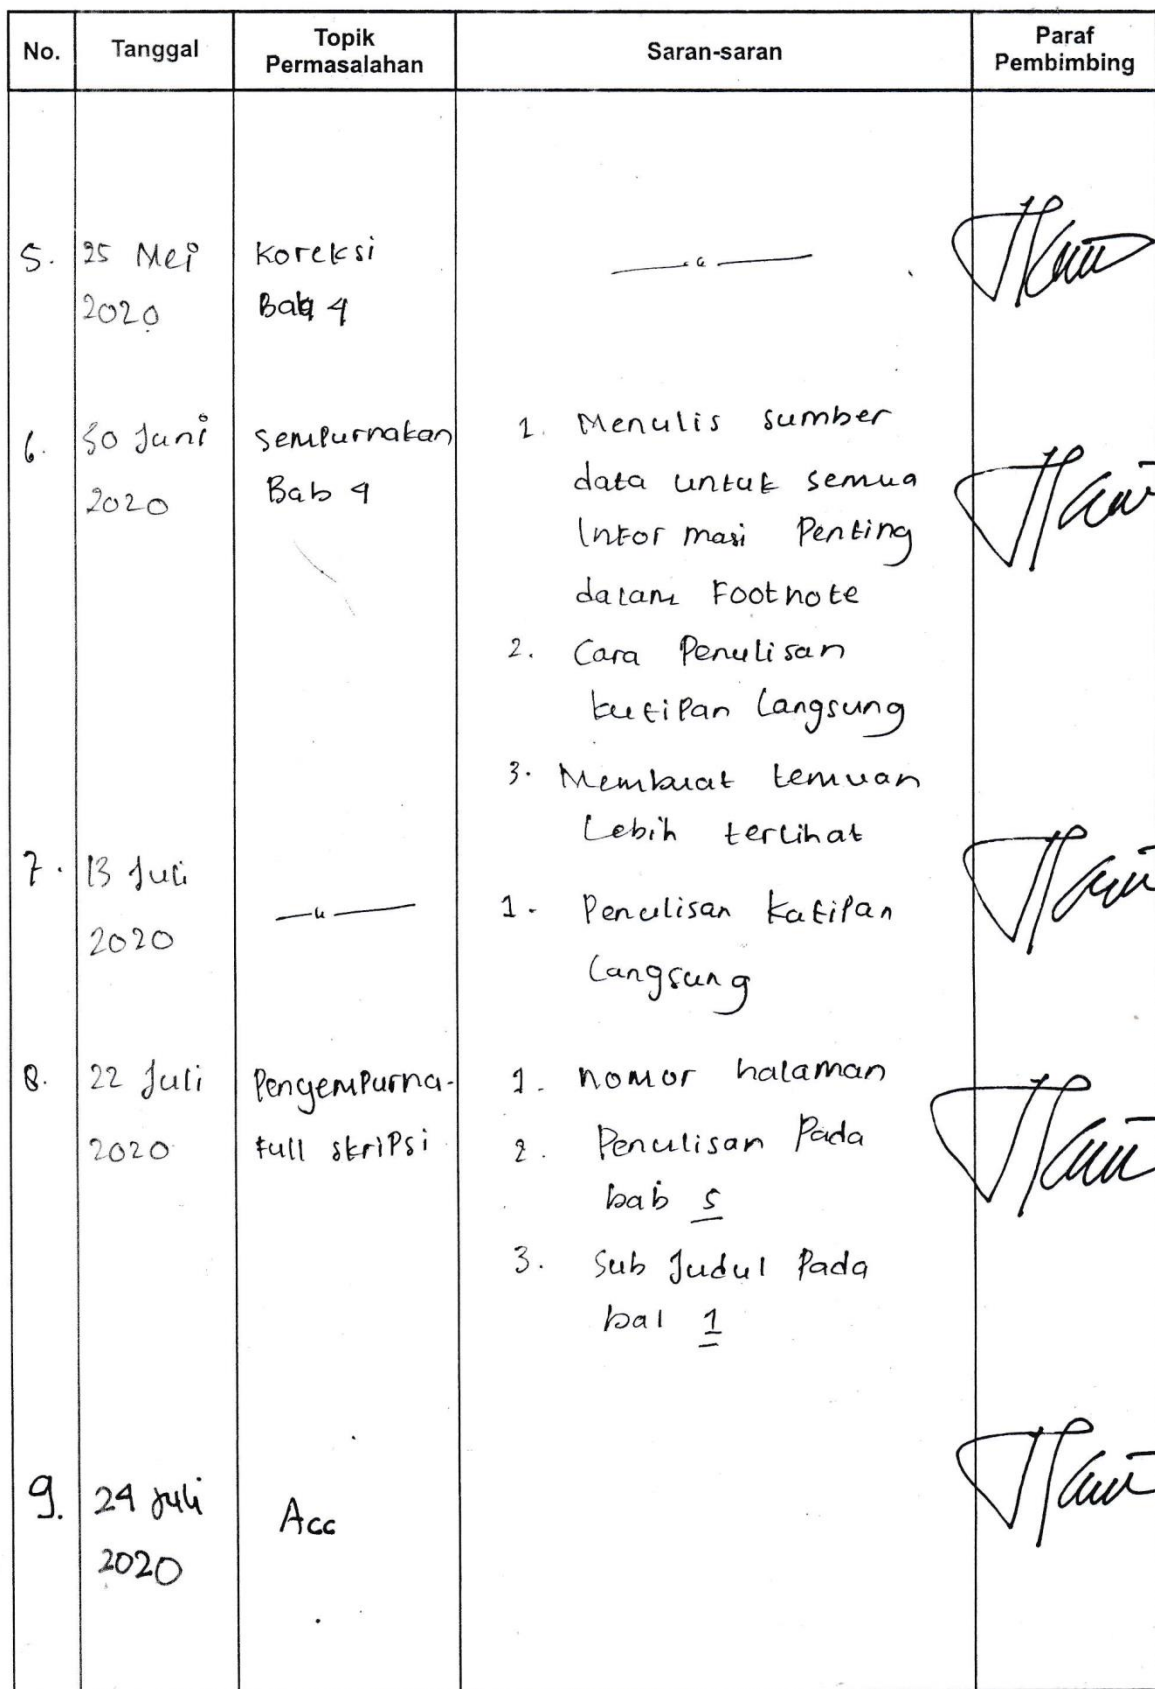 No. Tanggal Topik Permasalahan Saran-saran Paraf Pembimbing
5. 25 Mei 2020 Koreksi Bab 4 —"—
6. 30 Juni 2020 Sempurnakan Bab 4
1. Menulis sumber
data untuk semua
Informasi Penting
dalam Footnote
2. Cara Penulisan
kutipan Langsung
3. Membuat temuan
Lebih terlihat
7. 13 Juli 2020 —"—
1. Penulisan kutipan
Langsung
8. 22 Juli 2020 Pengempurna- full skripsi
1. nomor halaman
2. Penulisan Pada
bab 5
3. Sub Judul Pada
bab 1
9. 24 Juli 2020 Acc